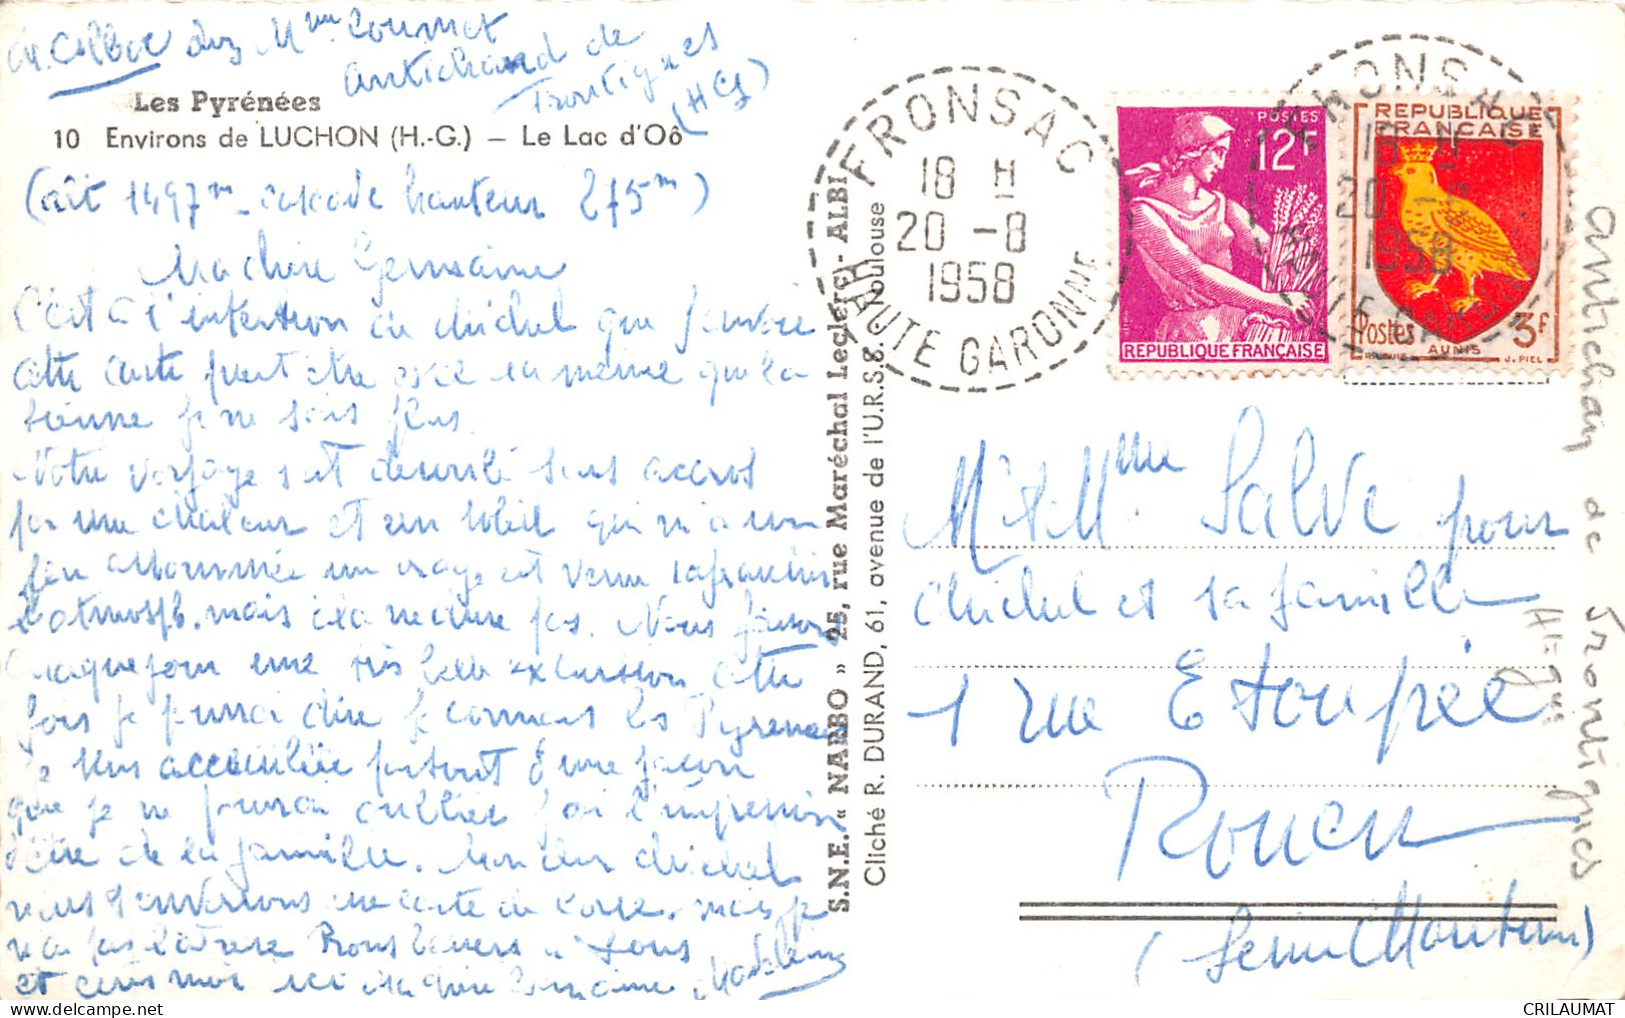 chez Mme Cournet
Antichand de
Frontignes
(HG)
Les Pyrénées
10 Environs de LUCHON (H.-G.) – Le Lac d'Oô
(alt 1497m - cascade hauteur 275m)
Ma chère Germaine
C'est à l'intention de Michel que j'envoie
cette carte peut être est ce la même que la
tienne je ne sais plus.
Notre voyage s'est déroulé sans accros
par une chaleur et un soleil qui m'a un
peu assommée un orage est venu rafraichir
l'atmosph. mais cela ne dure pas. Nous faisons
chaque jour une très belle excursion cette
fois je pourrai dire je connais les Pyrénées
Je suis accueillie partout d'une façon
que je ne pourrai oublier j'ai l'impression
d'être de la famille. Mon cher Michel
nous t'enverrons une carte de mais je
n'ai pas l'adresse Bons baisers à tous
et écris moi ici la semaine Madeleine
S.N.E. « NARBO » 25, rue Maréchal Leclerc - ALBI
Cliché R. DURAND, 61, avenue de l'U.R.S.S. Toulouse
FRONSAC
18 H
20 -8
1958
HAUTE GARONNE
POSTES
12F
REPUBLIQUE FRANÇAISE
FRONSAC
18 H
20 -8
1958
HAUTE GARONNE
REPUBLIQUE
FRANÇAISE
Postes 3F
AUNIS
J. PIEL
M. & Mme Salve pour
Michel et sa famille
1 rue Etoupée
Rouen
(Seine Maritime)
Antichan de Frontignes
Hte Gne
CRILAUMAT